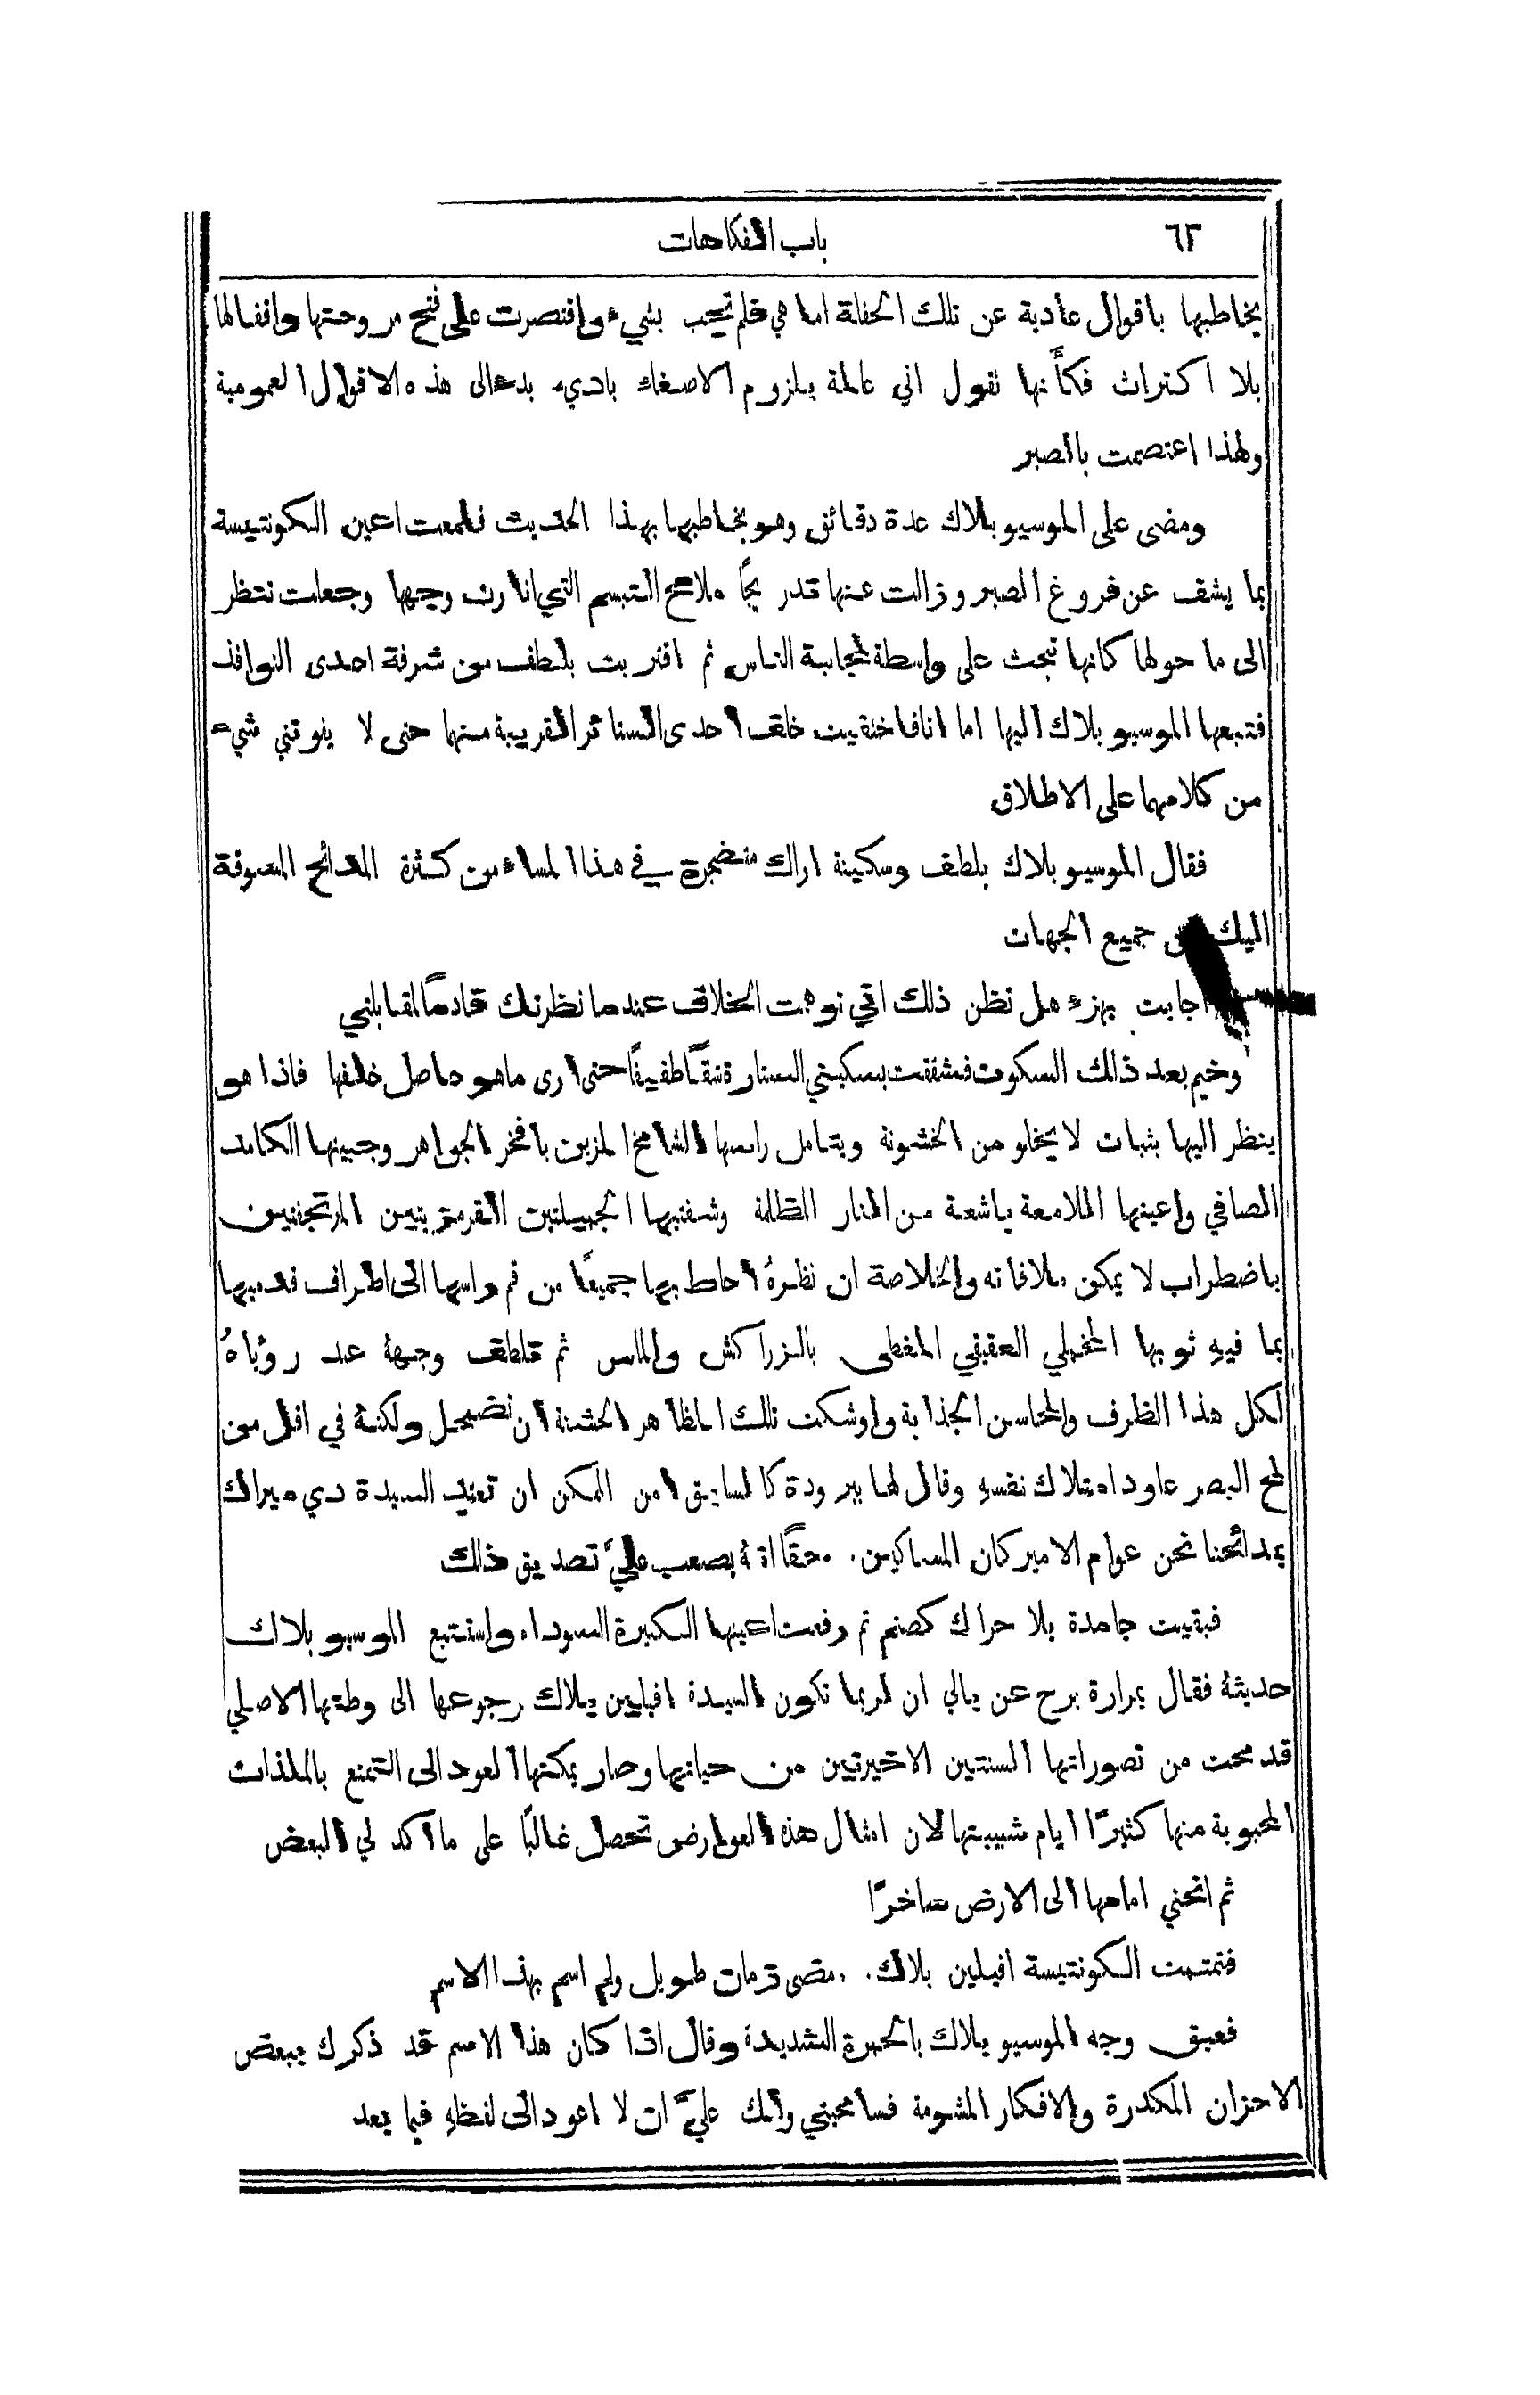 ٦٢ باب الفكاهات
يخاطبها باقوال عادية عن تلك الحفلة اما هي فلم تجب بشيء واقتصرت على فتح مروحتها واقفالها
بلا اكتراث فكأنها تقول اني عالمة بلزوم الاصغاء باديء بدء الى هذه الاقوال العمومية
ولهذا اعتصمت بالصبر
ومضى على الموسيو بلاك عدة دقائق وهو يخاطبها بهذا الحديث فلمعت اعين الكونتيسة
بما يشف عن فروغ الصبر وزالت عنها تدريجًا ملامح التبسم التي انارت وجهها وجعلت تنظر
الى ما حولها كانها تبحث على واسطة لمجانبة الناس ثم اقتربت بلطف من شرفة احدى النوافذ
فتبعها الموسيو بلاك اليها اما انا فاختفيت خلف احدى الستائر القريبة منها حتى لا يفوتني شيء
من كلامهما على الاطلاق
فقال الموسيو بلاك بلطف وسكينة اراك متضجرة في هذا المساء من كثرة المدائح المسوقة
اليك من جميع الجهات
اجابت بهزء هل تظن ذلك اني توهمت الخلاف عندما نظرتك قادمًا لمقابلتي
وخيم بعد ذلك السكوت فشققت بسكيني الستارة شقًا طفيفًا حتى ارى ما هو حاصل خلفها فاذا هو
ينظر اليها بثبات لا يخلو من الخشونة ويتامل راسها الشامخ المزين بافخر الجواهر وجبينها الكامد
الصافي واعينها اللامعة باشعة من النار المظلمة وشفتيها الجميلتين القرمزيتين المرتجفتين
باضطراب لا يمكن ملافاته والخلاصة ان نظرهُ احاط بها جميعًا من قم راسها الى اطراف قدميها
بما فيهِ ثوبها المخملي العقيقي المغطى بالزراكش والماس ثم تلطف وجههُ عند رؤياهُ
لكل هذا الظرف والمحاسن الجذابة واوشكت تلك المظاهر الخشنة ان تضمحل ولكنهُ في اقل من
لمح البصر عاود امتلاك نفسهِ وقال لها ببرودة كالسابق امن الممكن ان تعتد السيدة دي ميراك
بمدائحنا نحن عوام الاميركان المساكين. . حقًا انهُ يصعب عليَّ تصديق ذلك
فبقيت جامدة بلا حراك كصنم ثم رفعت اعينها الكبيرة السوداء واستتبع الموسيو بلاك
حديثهُ فقال بمرارة برح عن بالي ان لربما تكون السيدة افيلين بلاك رجوعها الى وطنها الاصلي
قد محت من تصوراتها السنتين الاخيرتين من حياتها وصار يمكنها العود الى التمتع بالملذات
المحبوبة منها كثيرًا ايام شبيبتها لان امثال هذه العوارض تحصل غالبًا على ما أكد لي البعض
ثم انحنى امامها الى الارض ساخرًا
فتمتمت الكونتيسة افيلين بلاك. . مضى زمان طويل ولم اسم بهذا الاسم
فعبق وجه الموسيو بلاك بالحمرة الشديدة وقال اذا كان هذا الاسم قد ذكرك ببعض
الاحزان المكدرة والافكار المشومة فسامحيني ولك عليَّ ان لا اعود الى لفظهِ فيما بعد